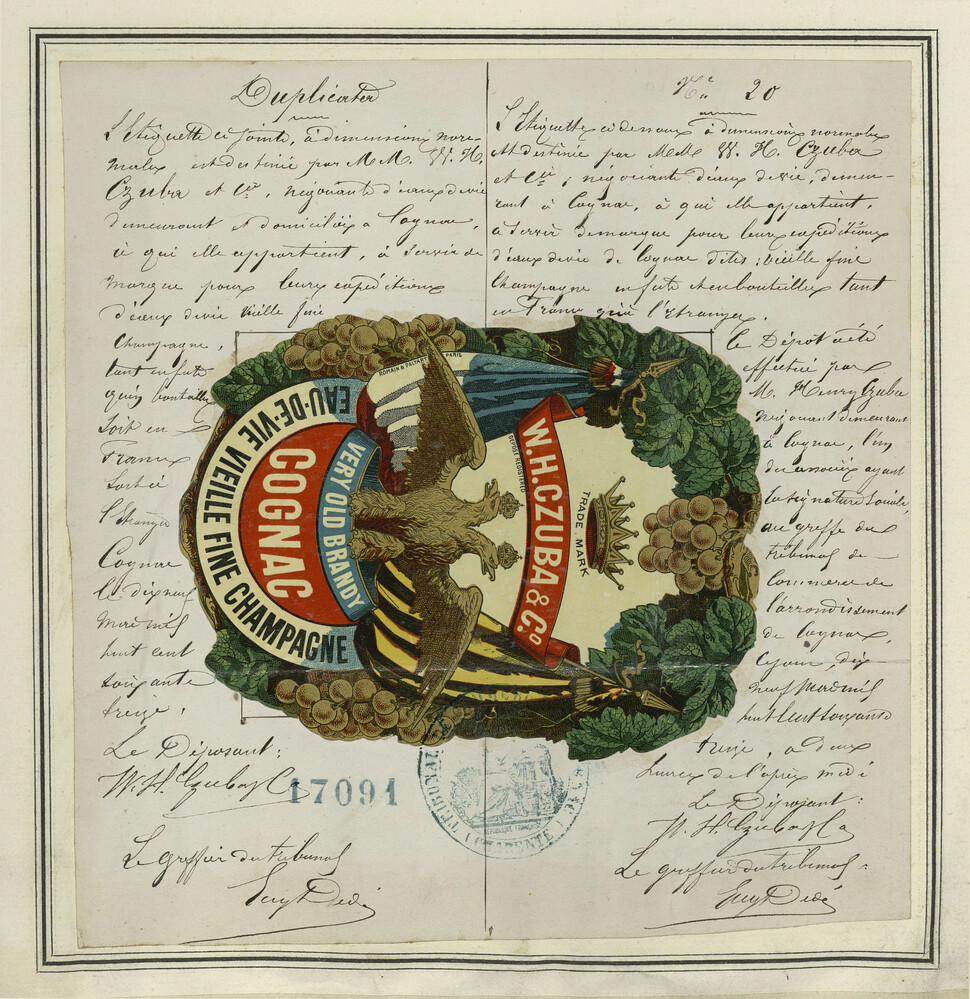 Duplicata
L'Etiquette ci jointe, à dimensions nor-
males est destinée par M.M. W. H.
Czuba et Cie, négociants d'eaux de vie
demeurant et domiciliés à Cognac,
à qui elle appartient, à servir de
marque pour leurs expéditions
d'eaux de vie vieille fine
Champagne,
tant en futs
qu'en bouteilles
soit en
France
soit à
l'étranger
Cognac
le dix neuf
Mars mil
huit cent
soixante
treize.
Le Déposant:
W. H. Czuba & Co
17091
Le greffier du tribunal
No 20
L'Etiquette ci dessous à dimensions normales
est destinée par MM. W. H. Czuba
et Cie, négociants d'eaux de vie, demeu-
rant à Cognac, à qui elle appartient,
à servir de marque pour leurs expéditions
d'eaux de vie de Cognac dites: vieille fine
Champagne en futs et en bouteilles tant
en France qu'à l'étranger.
Le Dépôt a été
effectué par
M. Henry Czuba
négociant demeurant
à Cognac, l'un
des associés ayant
la signature sociale,
au greffe du
tribunal de
Commerce de
l'arrondissement
de Cognac,
Ce jour, dix
neuf Mars mil
huit cent soixante
treize, à deux
heures de l'après midi
Le Déposant:
W. H. Czuba & Co
Le greffier du tribunal
ROMAIN & PALYART PARIS
EAU-DE-VIE VIEILLE FINE CHAMPAGNE
COGNAC
VERY OLD BRANDY
W.H.CZUBA & Co
DEPOSE REGISTERED
TRADE MARK
TRIBUNAL
REPUBLIQUE FRANCAISE
(CHARENTE)